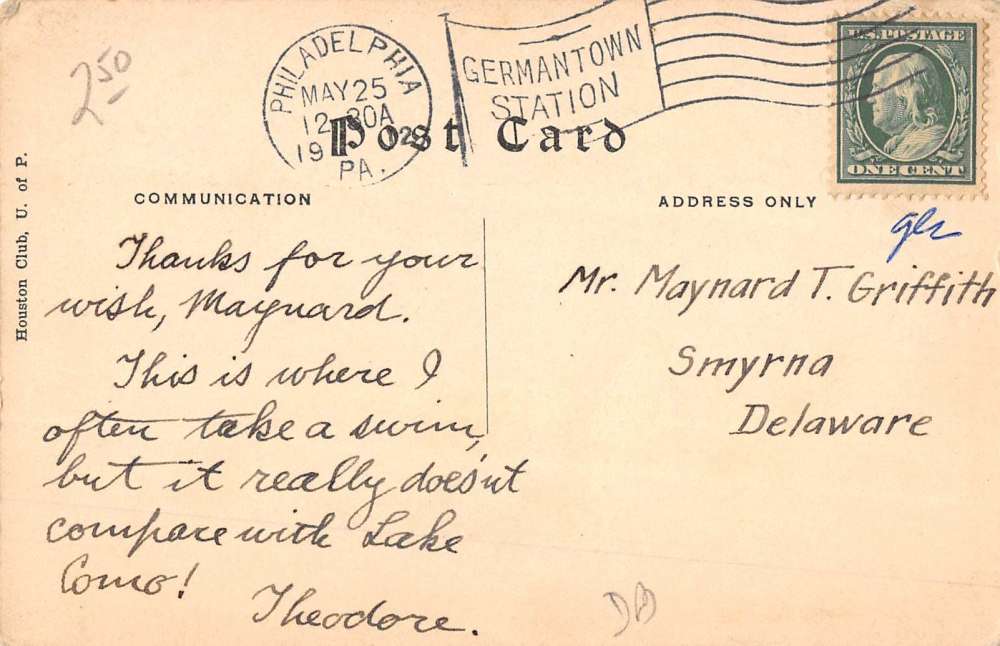 2.50
PHILADELPHIA
MAY 25
12 30A
19 12
PA.
GERMANTOWN
STATION
U.S. POSTAGE
ONE CENT
Post Card
COMMUNICATION
ADDRESS ONLY
Houston Club, U. of P.
Thanks for your
wish, Maynard.
This is where I
often take a swim,
but it really does'nt
compare with Lake
Como!
Theodore.
Mr. Maynard T. Griffith
Smyrna
Delaware